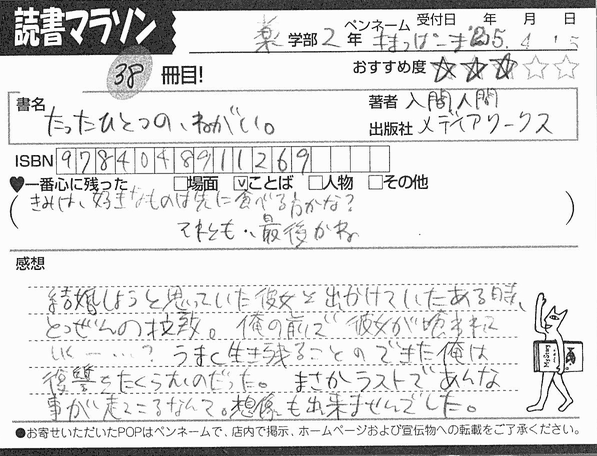 読書マラソン
ペンネーム 受付日 年 月 日
薬 学部 2 年 25. 4. 15
38 冊目!
おすすめ度 ☆☆☆☆☆
書名 著者 入間人間
たったひとつの、ねがい。
出版社 メディアワークス
ISBN 9784048911269
♥一番心に残った □場面 ☑ことば □人物 □その他
きみは、好きなものは先に食べる方かな?
それとも、最後かね
感想
結婚しようと思っていた彼女と出かけていたある時、
とつぜんの拉致。俺の前で彼女が喰われて
いく……? うまく生き残ることのできた俺は
復讐をたくらむのだった。まさかラストであんな
事が起こるなんて。想像も出来ませんでした。
●お寄せいただいたPOPはペンネームで、店内で掲示、ホームページおよび宣伝物への転載をご了承ください。